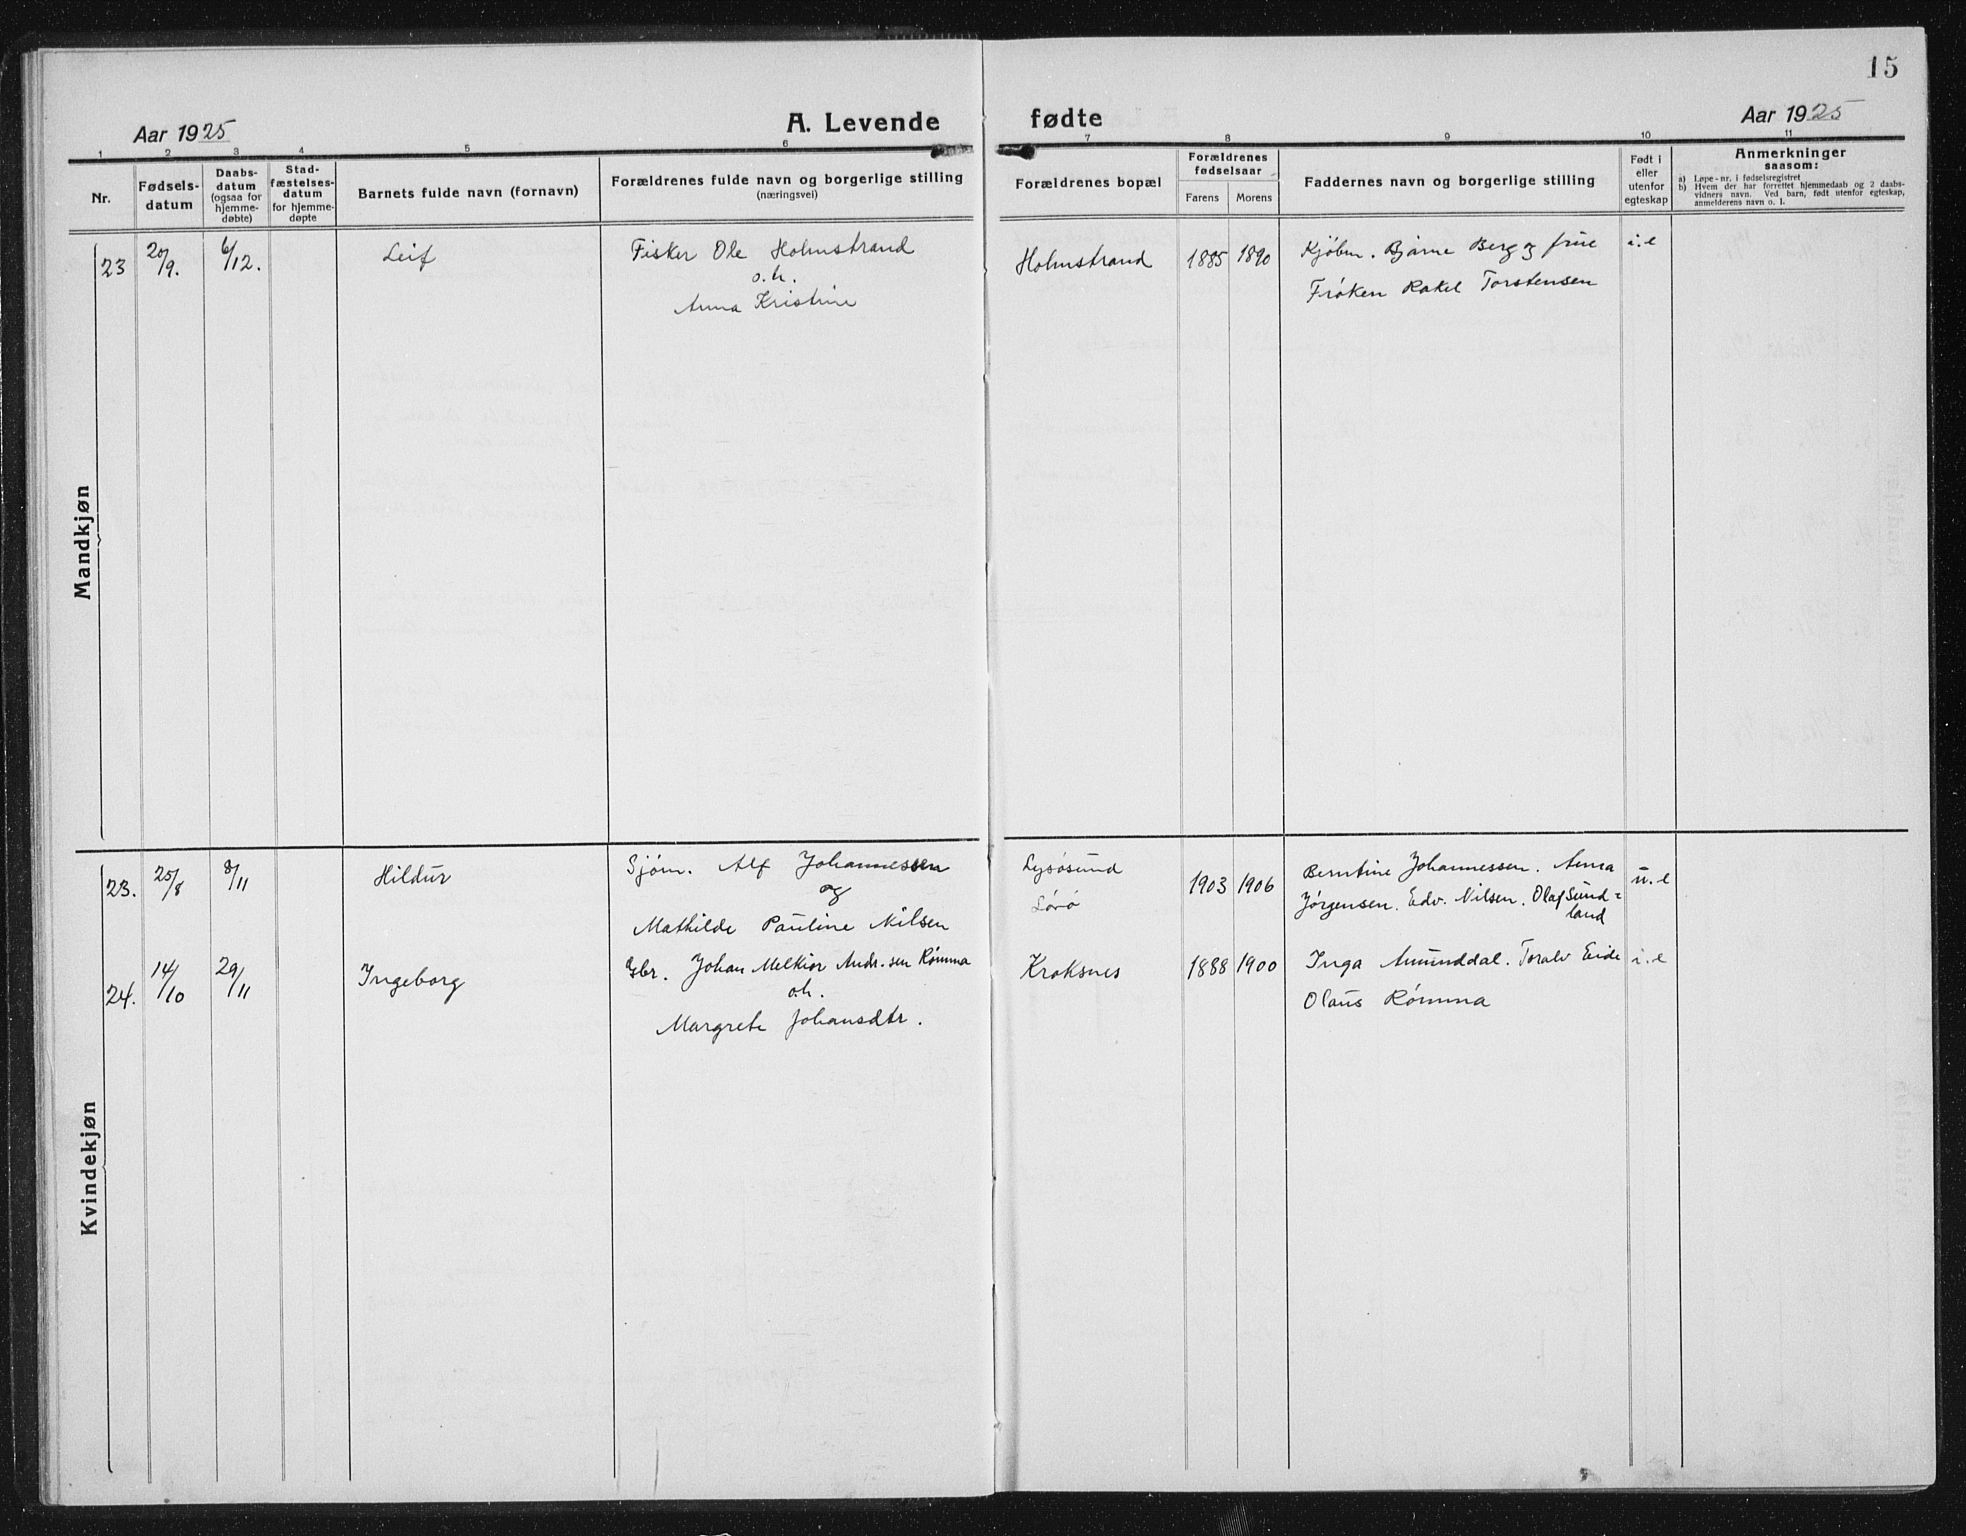 15
Aar 1925
A. Levende fødte
Aar 1925
1 2 3 4 5 6 7 8 9 10 11
Nr.
Fødsels-
datum
Daabs-
datum
(ogsaa for
hjemme-
døbte)
Stad-
fæstelses-
datum
for hjemme-
døpte
Barnets fulde navn (fornavn)
Forældrenes fulde navn og borgerlige stilling
(næringsvei)
Forældrenes bopæl
Forældrenes
fødselsaar
Farens Morens
Faddernes navn og borgerlige stilling
Født i
eller
utenfor
egteskap
Anmerkninger
saasom:
a) Løpe-nr. i fødselsregistret
b) Hvem der har forrettet hjemmedaab og 2 daabs-
vidners navn. Ved barn, født utenfor egteskap,
anmelderens navn o. l.
Mandkjøn
23 20/9. 6/12. Leif Fisker Ole Holmstrand
o.h.
Anna Kristine
Holmstrand 1885 1890 Kjøbm. Bjarne Berg og frue i.e
Frøken Rakel Torstensen
Kvindekjøn
23. 25/8 8/11 Hildur Sjøm. Alf Johannessen
og
Mathilde Pauline Nilsen
Lysøsund
Sørø
1903 1906 Berntine Johannessen. Anna u.e
Jørgensen. Edv. Nilsen. Olaf Sund=
land
24. 14/10 29/11 Ingeborg Gbr. Johan Melkior Andr.sen Rømma
o.h.
Margrete Johansdtr.
Kroksnes 1888 1900 Inga Amunddal. Toralv Eide i.e
Olaus Rømma